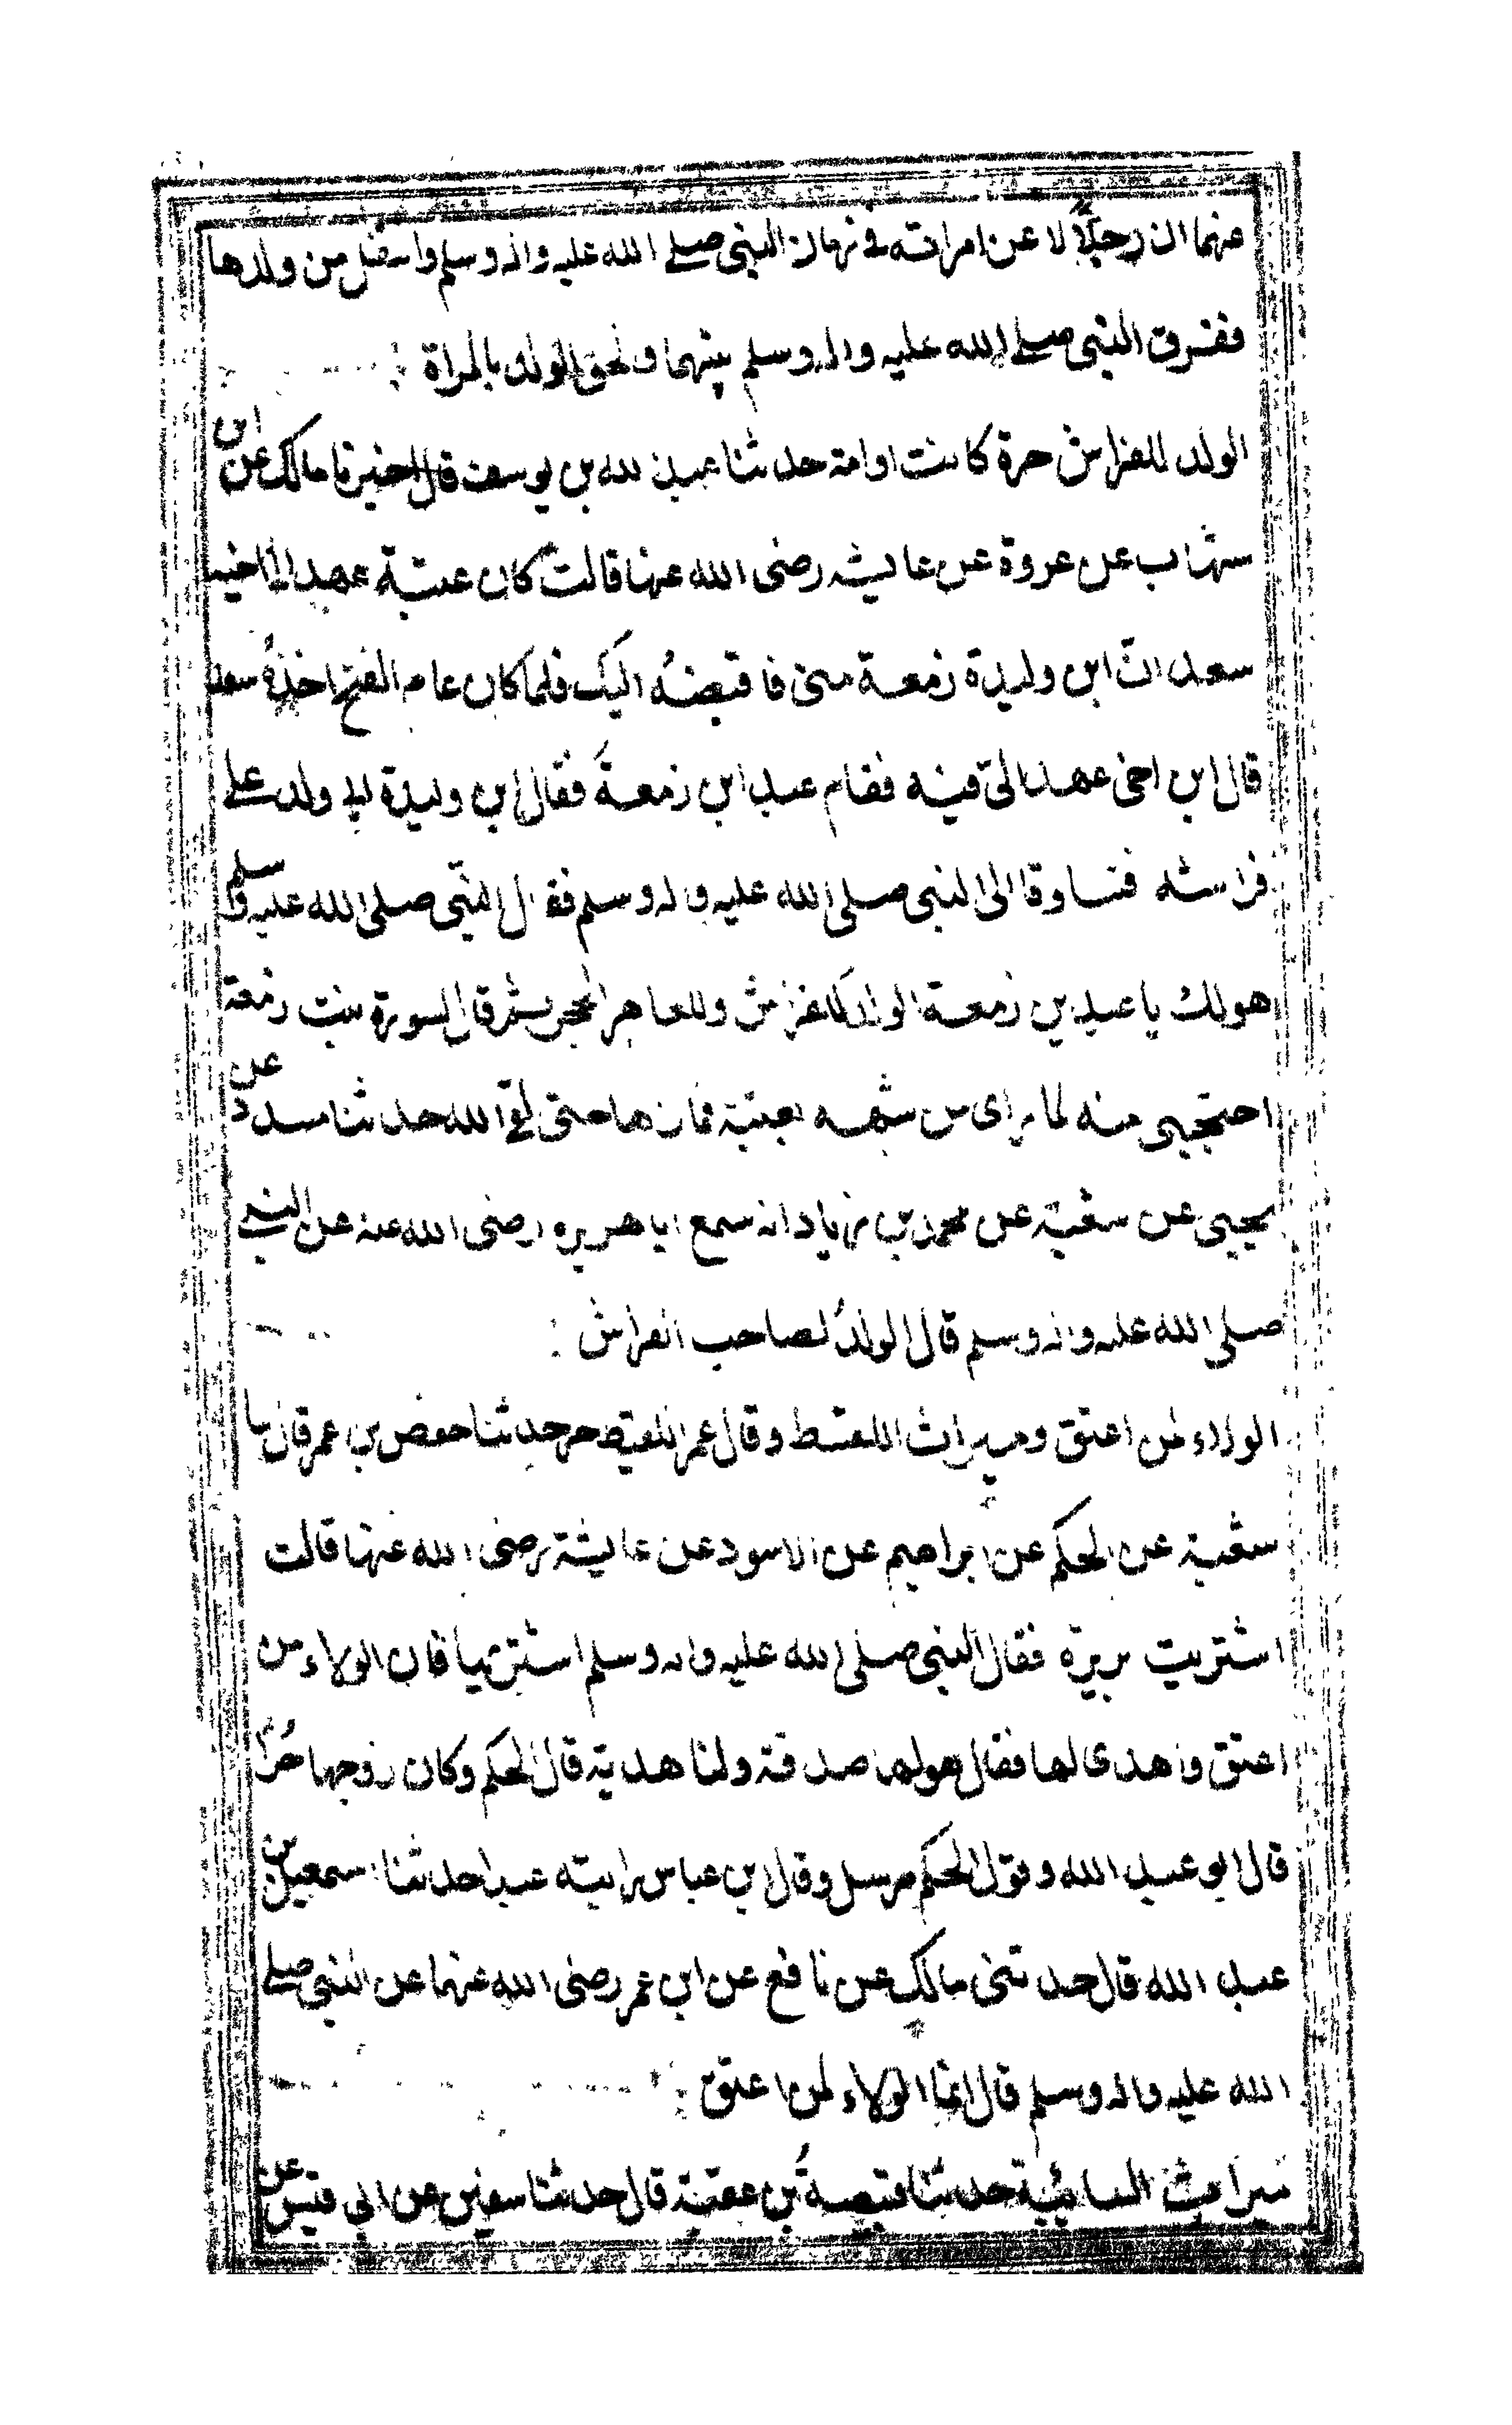 عنهما ان رجلاً لا عن امراته في زمان النبي صلى الله عليه واله وسلم وانتفل من ولدها
ففرق النبي صلى الله عليه واله وسلم بينهما ولحق الولد بالمراة
الولد للفراش حرة كانت او امة حدثنا عبد الله بن يوسف قال اخبرنا مالك عن ابن
شهاب عن عروة عن عايشه رضى الله عنها قالت كان عتبة عهد الى اخيه
سعد انّ ابن وليدة زمعة منى فاقبضهُ اليك فلما كان عام الفتح اخذهُ سعد
قال ابن اخى عهد الىّ فيه فقام عبد ابن زمعة فقال ابن وليدة ابي ولد على
فراشه فتساوقا الى النبي صلى الله عليه واله وسلم فقال النبي صلى الله عليه وسلم
هو لك يا عبد بن زمعة الولد للفراش وللعاهر الحجر ثم قال لسودة بنت زمعة
احتجبى منه لما راى من شبهه بعتبة فما راها حتى لقى الله حدثنا مسدد عن
يحيى عن شعبة عن محمد بن زياد انه سمع ابا هريره رضى الله عنه عن النبي
صلى الله عليه واله وسلم قال الولدُ لصاحب الفراش
الولاء لمن اعتق وميراث اللقيط وقال عمر اللقيط حر حدثنا حفص بن عمر قال نا
شعبة عن الحكم عن ابراهيم عن الاسود عن عايشة رضى الله عنها قالت
اشتريت بريرة فقال النبي صلى الله عليه واله وسلم اشتريها فان الولاء من
اعتق واهدى لها فقال هو لها صدقة ولنا هدية قال الحكم وكان زوجها حُراً
قال ابو عبد الله وقول الحكم مرسل وقال ابن عباس رايته عبدا حدثنا اسمعيل بن
عبد الله قال حدثنى مالك عن نافع عن ابن عمر رضى الله عنهما عن النبي صلى
الله عليه واله وسلم قال انما الولاء لمن اعتق
ميراث السائبة حدثنا قبيصةُ بن عقبة قال حدثنا سفين عن ابي قيس عن